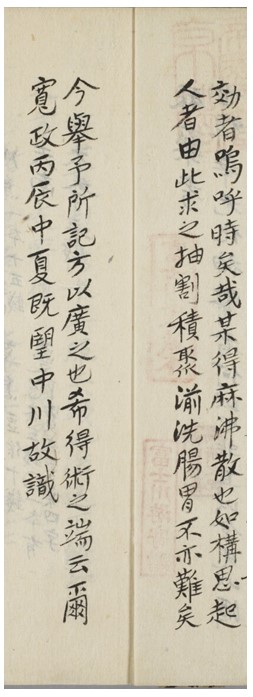 効者嗚呼時矣哉某得麻沸散也如構思起
人者由此求之抽割積聚湔洗腸胃不亦難矣
今舉予所記方以廣之也希得術之端云爾
寬政丙辰中夏既望中川故識